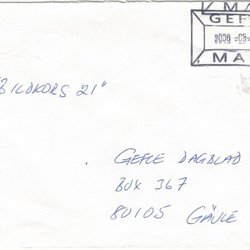 MA
GEFL
2008 -05-
MA
"BILDKORS 21"
GEFLE DAGBLAD
BOX 367
80105 GÄVLE